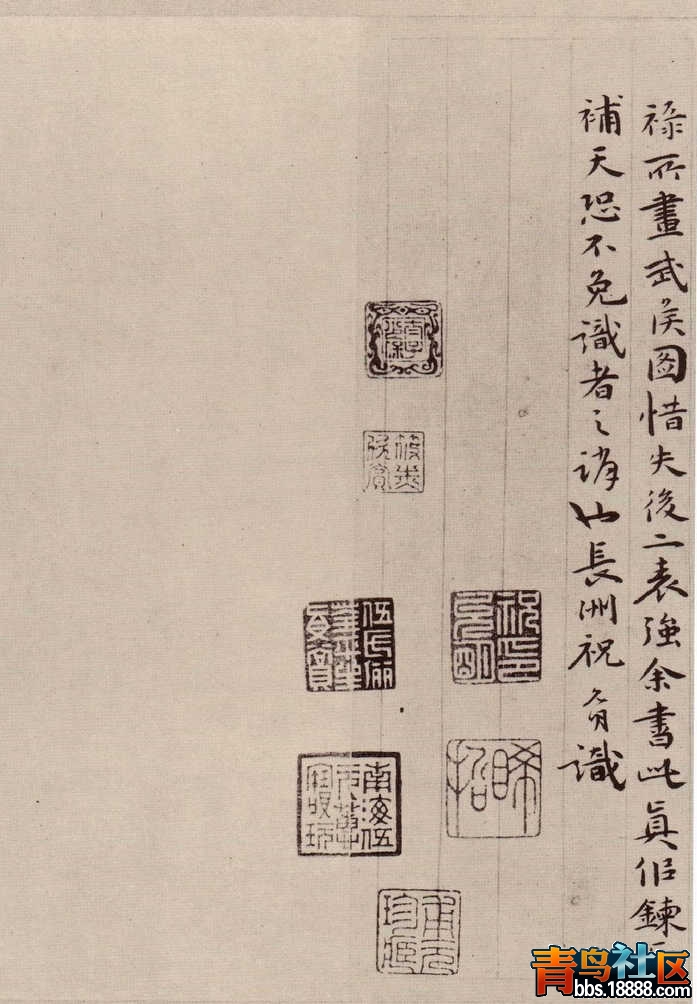 祿所畫武侯圖惜失後二表強余書此真佀鍊
補天恐不免識者之誚也長洲祝允明識
祝允明印
晞哲
伍氏儷荃平生真賞
青鸟社区
bbs.18888.com